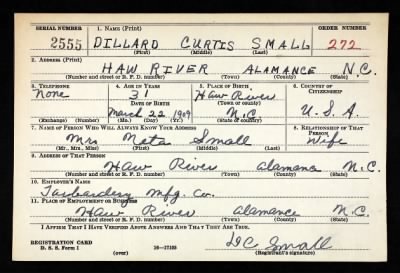 SERIAL NUMBER 1. NAME (Print) ORDER NUMBER
2555 DILLARD CURTIS SMALL 272
(First) (Middle) (Last)
2. ADDRESS (Print)
HAW RIVER ALAMANCE N.C.
(Number and street or R. F. D. number) (Town) (County) (State)
3. TELEPHONE 4. AGE IN YEARS 5. PLACE OF BIRTH 6. COUNTRY OF CITIZENSHIP
None 31 Haw River
DATE OF BIRTH (Town or county)
March 22 1909 N.C. U.S.A.
(Exchange) (Number) (Mo.) (Day) (Yr.) (State or country)
7. NAME OF PERSON WHO WILL ALWAYS KNOW YOUR ADDRESS 8. RELATIONSHIP OF THAT PERSON
Mrs Meta Small Wife
(Mr., Mrs., Miss) (First) (Middle) (Last)
9. ADDRESS OF THAT PERSON
Haw River Alamana N.C.
(Number and street or R. F. D. number) (Town) (County) (State)
10. EMPLOYER'S NAME
Mfg. Co.
11. PLACE OF EMPLOYMENT OR BUSINESS
Haw River Alamance N.C.
(Number and street or R. F. D. number) (Town) (County) (State)
I AFFIRM THAT I HAVE VERIFIED ABOVE ANSWERS AND THAT THEY ARE TRUE.
REGISTRATION CARD
D. S. S. Form 1 16-17105 DC Small
(over) (Registrant's signature)